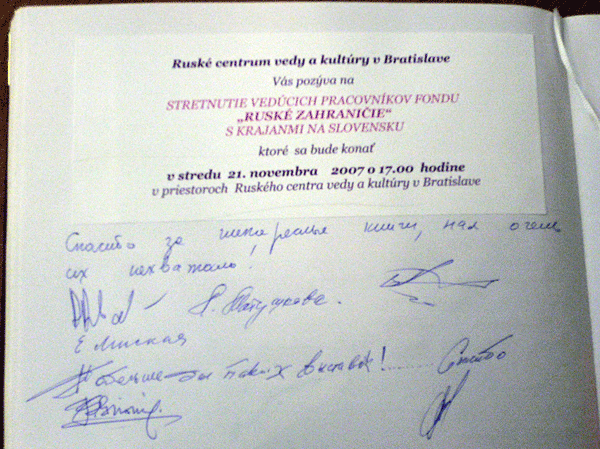 Ruské centrum vedy a kultúry v Bratislave
Vás pozýva na
STRETNUTIE VEDÚCICH PRACOVNÍKOV FONDU
„RUSKÉ ZAHRANIČIE“
S KRAJANMI NA SLOVENSKU
ktoré sa bude konať
v stredu 21. novembra 2007 o 17.00 hodine
v priestoroch Ruského centra vedy a kultúry v Bratislave
Спасибо за книги, нам очень
их нехватало!
Е Минская
Побольше бы таких выставок! Спасибо